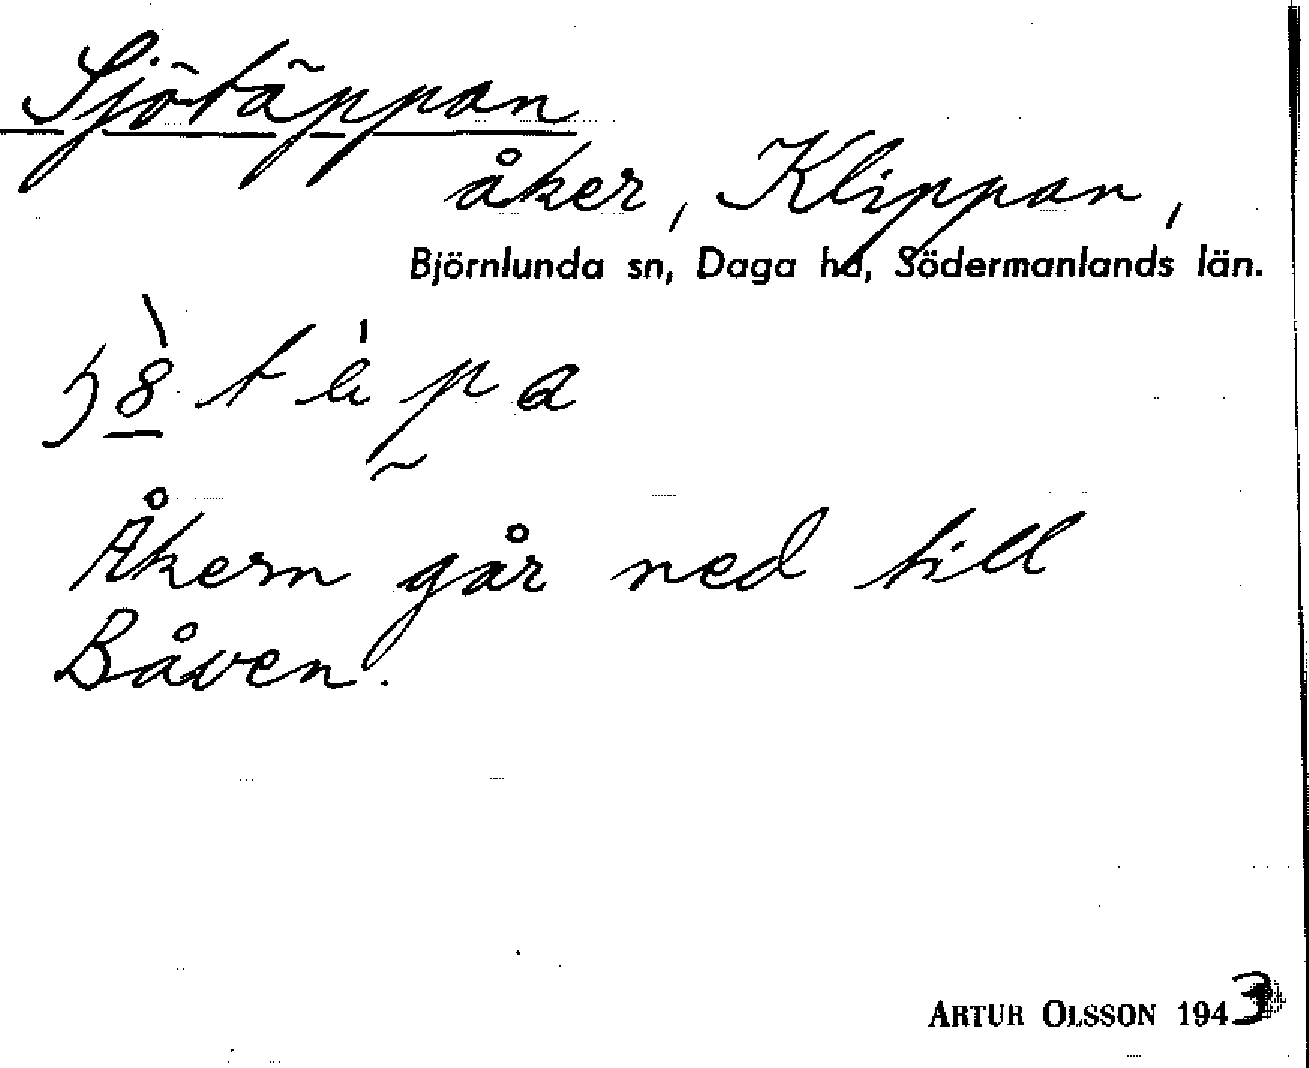 Sjötäppan
åker, Klippan,
Björnlunda sn, Daga hd, Södermanlands län.
Åkern går ned till
Båven.
ARTUR OLSSON 1943